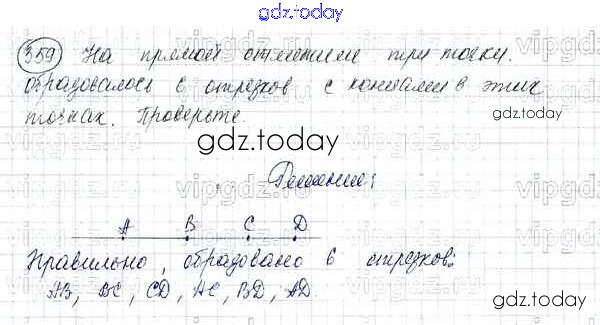 gdz.today
359 На прямой отметили три точки.
Образовалось 6 отрезков с концами в этих
точках. Проверьте.
gdz.today
Решение:
A B C D
Правильно, образовано 6 отрезков:
AB, BC, CD, AC, BD, AD.
gdz.today